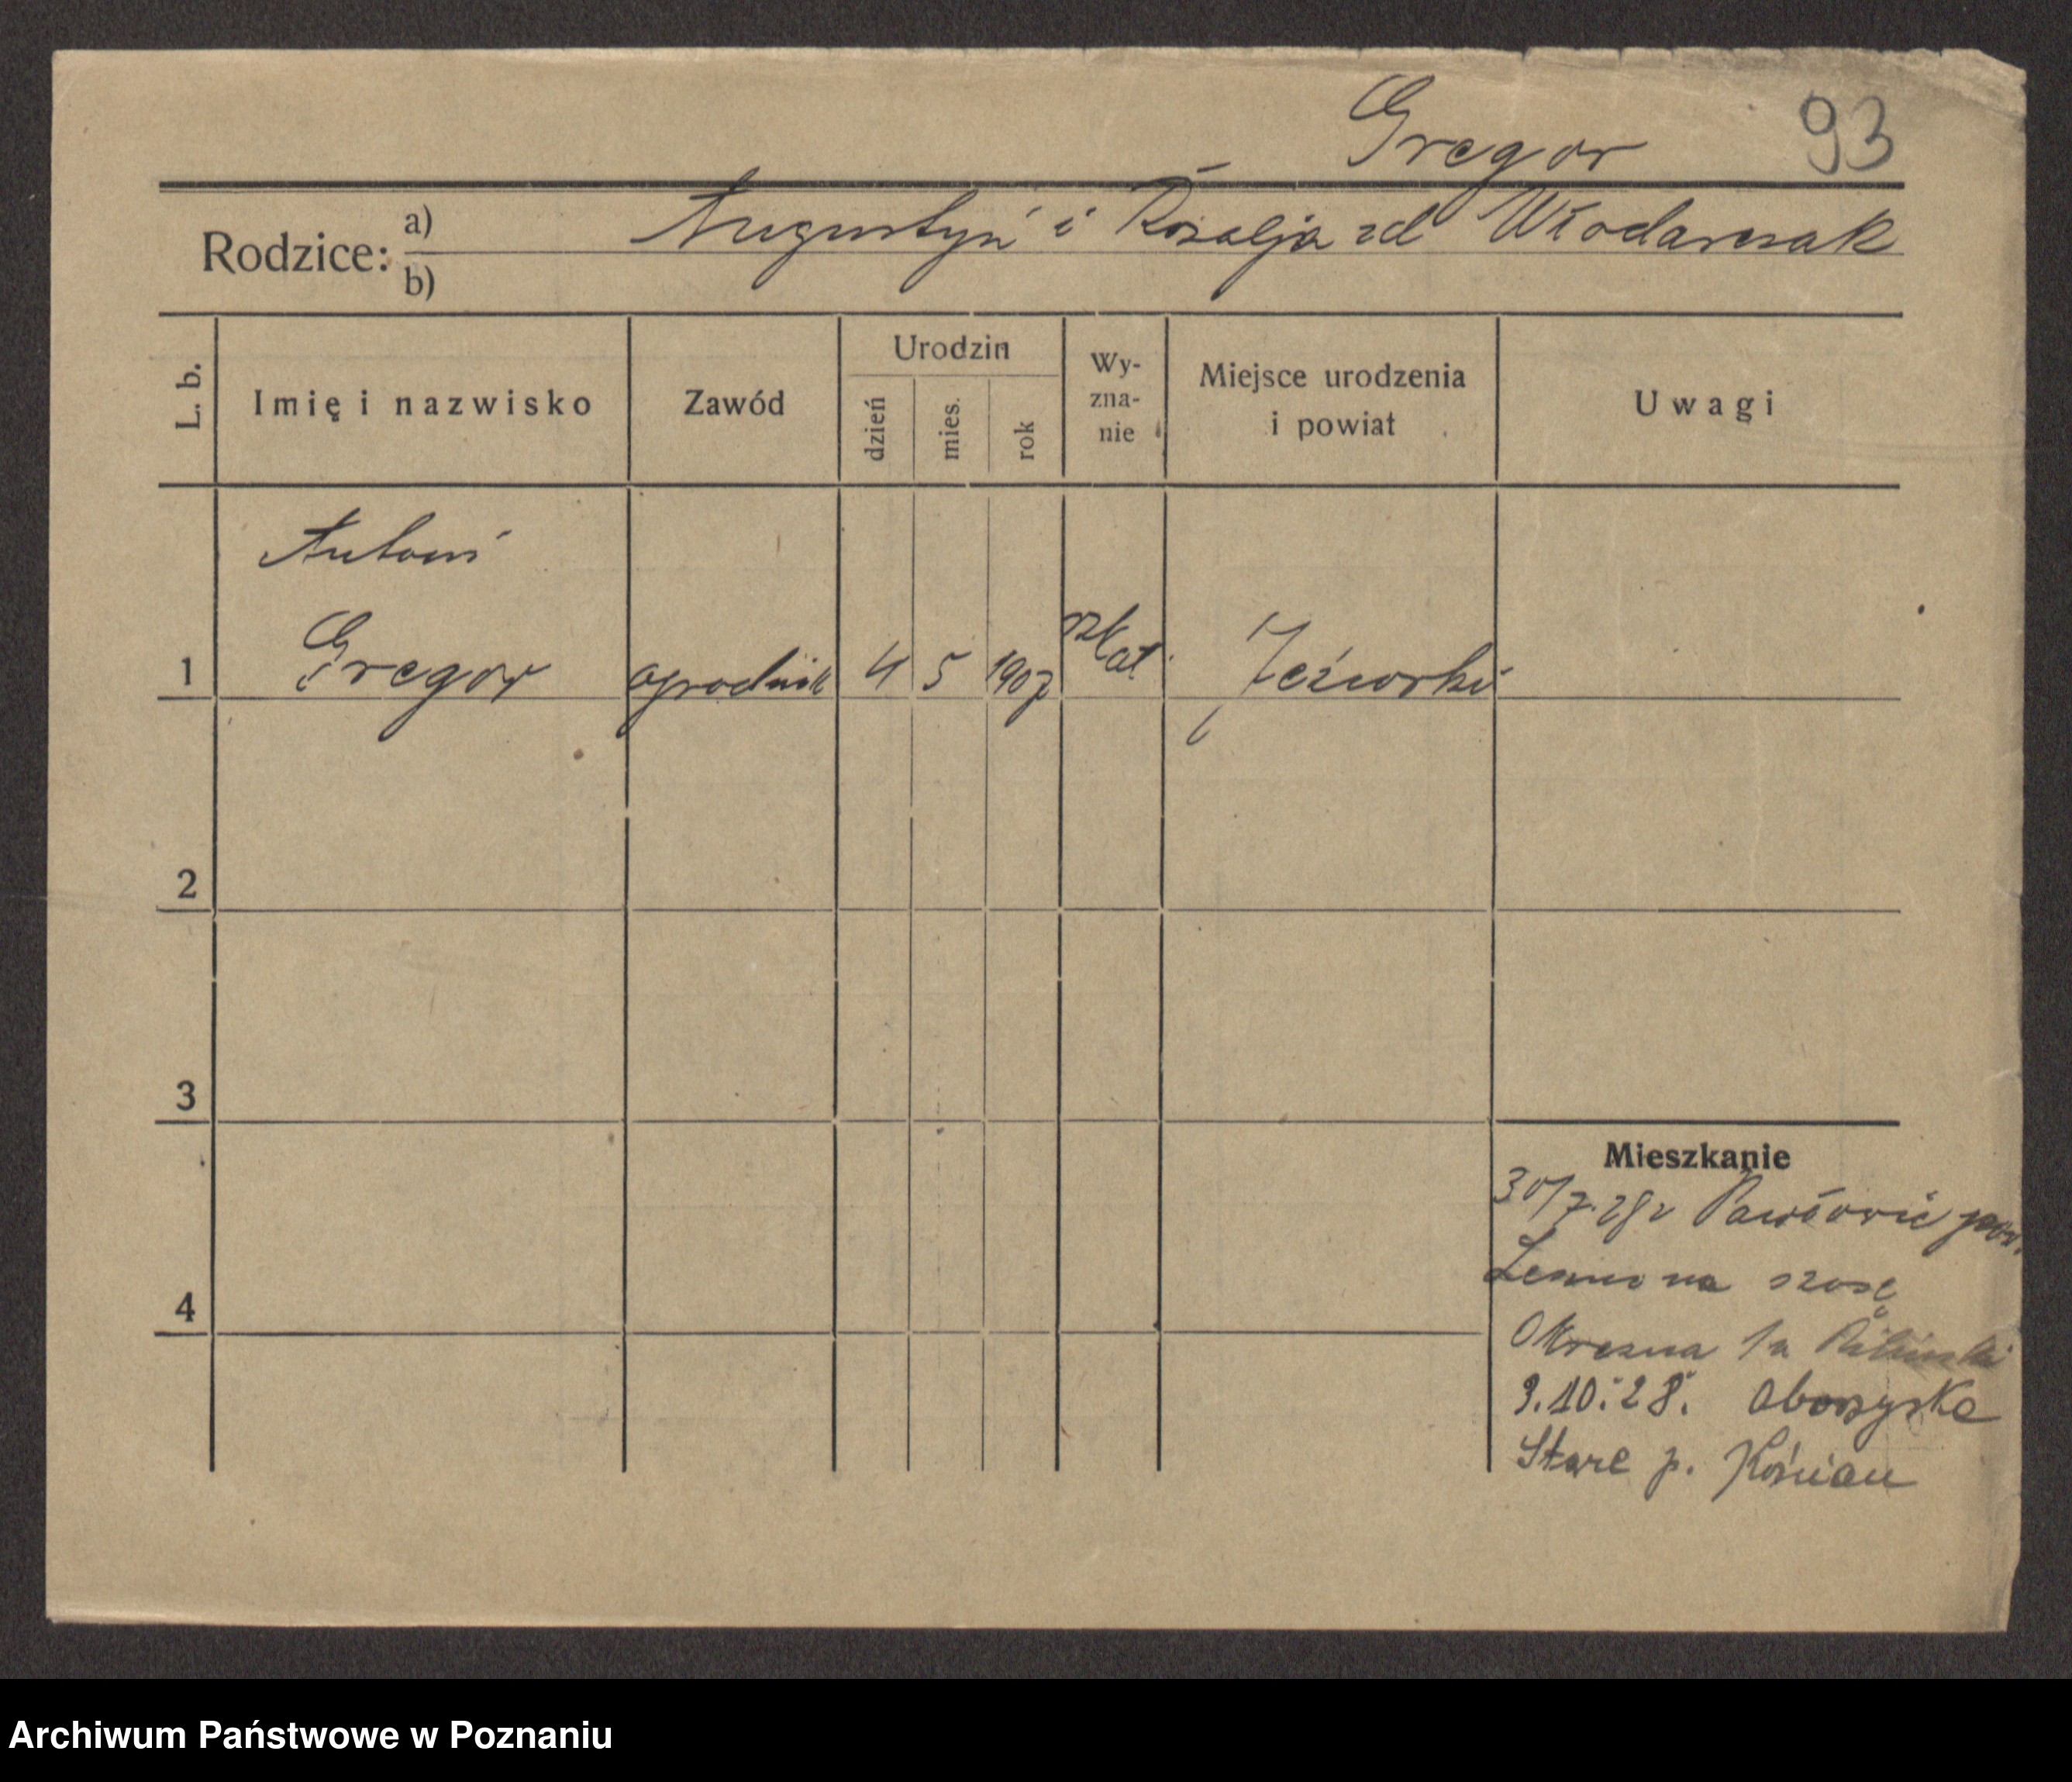 Gregor 93
Rodzice: a) Augustyn i Rozalja zd Włodarczak
b)
L. b. Imię i nazwisko Zawód Urodzin dzień mies. rok Wy-zna-nie Miejsce urodzenia i powiat Uwagi
Antoni
1 Gregor ogrodnik 4 5 1907 rzkat. Jeżewski
2
3
4
Mieszkanie
30/7.28 r Pawłowic pow.
Leszno na szosę
Okrezna 1a
9.10.28. Oborzyska
Stare p. Kościan
Archiwum Państwowe w Poznaniu